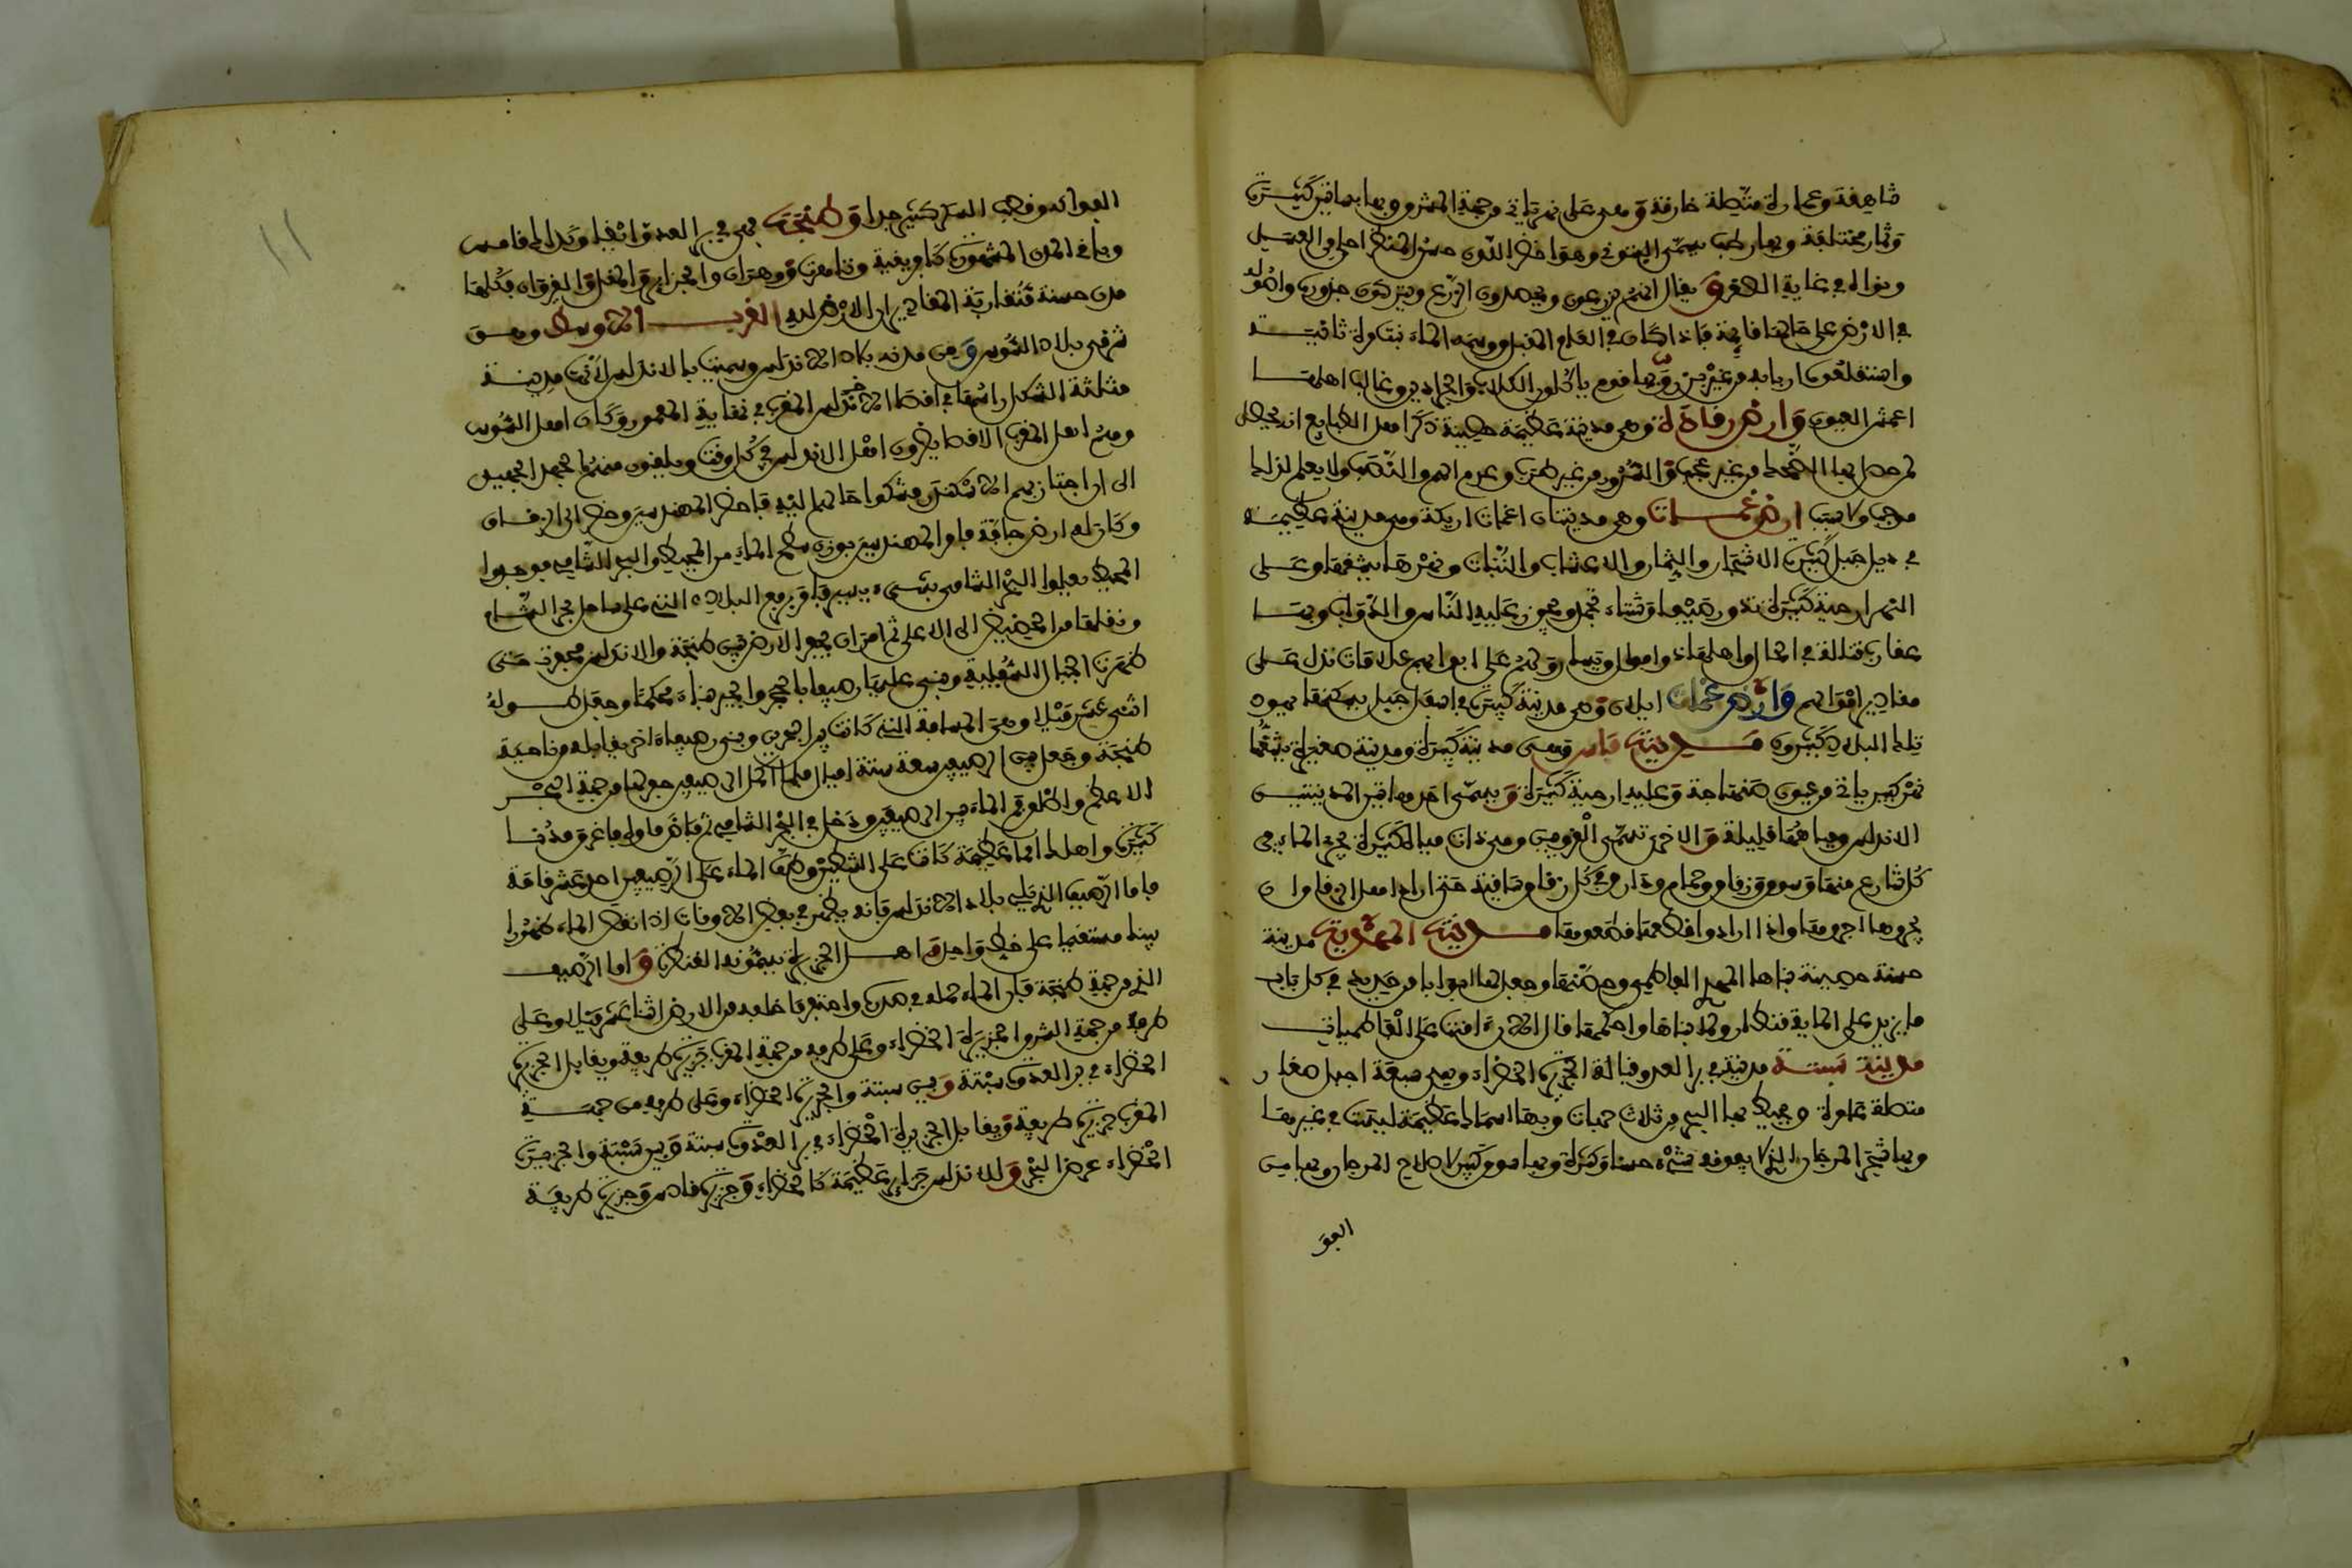 شاهقة وعمارة متصلة خارقة وهي على نهر ياتي من جهة المشرق وبها بساتين كثيرة
وثمار مختلفة وبها رطب يسمى البتوني وهو اخضر اللون حسن المنظر احلى من العسل
ونواه في غاية الصغر ويقال انهم يزرعون ويحصدون الزرع ويتركون جذوره واصوله
في الارض على حالها قايمة فاذا كان في العام المقبل وعمه الماء نبت مرة ثانية
واستغله اربابه من غير بذر وبها قوم ياكلون الكلاب والجرادين وغالب اهلها
اعمش العيون وارض رقادة وهي مدينة عظيمة حصينة ذكر اهل الطبايع انه يحصل
لمن دخل بها الضحك من غير عجب والسرور من غير طرب وعدم الهم والنصب ولا يعلم لذلك
موجب ولا سبب ارض غمات وهي مدينتان اغمات اريكة وهي مدينة عظيمة
في ذيل جبل كثيرة الاشجار والثمار والاعشاب والنبات ونهرها يشقها وعلى
النهر ارحية كثيرة تدور صيفا وشتاء يجمد ويجوز عليه الناس والدواب وبها
عقارب قتالة في الحال واهلها ذوو اموال ويسار ولهم على ابوابهم علامات تدل على
مقادير اموالهم وارض غمات ايلان وهي مدينة كبيرة في اسفل جبل يسكنها يهود
تلك البلاد كثيرون مدينة فاس وهي مدينة كبيرة ومدينة صغيرة يشقها
نهر كبير ياتي من عيون صنهاجة وعليه ارحية كثيرة ويسمى احد هاتين المدينتين
الاندلس ومياهها قليلة والاخرى تسمى القرويين وهي ذات مياه كثيرة يجري الماء في
كل شارع منها وسوق وزقاق وحمام ودار وفي كل زقاق ساقية متى اراد اهل الزقاق ان
يجروها اجروها واذا ارادوا قطعها قطعوها مدينة المهدية مدينة
حسنة حصينة بناها المهدي الفاطمي وحصنها وجعل لها ابوابا من حديد في كل باب
ما يزيد على الماية قنطار ولما بناها واحكمها قال الان امنت على الفاطميات
مدينة سبتة مدينة في بر العدو قبالة الجزيرة الخضراء وهي سبعة اجبل صغار
متصلة عامرة ويحيط بها البحر من ثلاث جهات وبها اسماك عظيمة ليست في غيرها
وبها شجر المرجان الذي لا يفوقه شيء حسنا وكثرة وبها سوق كبير لاصلاح المرجان وبها من
الفو
الفواكه وقصب السكر كثير جدا وطنجة هي في بر العدوة ايضا وكذلك فاس
وباقي المدن المشهورة كافريقية وتاهرت ووهران والجزاير والمغل والقيروان فكلها
مدن حسنة متقاربة المقادير ارض الغرب الاوسط وهو
شرقي بلاد السوس ومن مدنه بلاد الاندلس وسميت بالاندلس لانها مدينة
مثلثة الشكل راسها في اقصى المغرب في نهاية المعمور وكان اهل السوس
وهم اهل المغرب الاقصى يضرون اهل الاندلس في كل وقت ويلقون منهم الجهد الجهيد
الى ان اجتاز بهم الاسكندر فشكوا حالهم اليه فاحضر المهندسين وحضر الى الزقاق
وكان له ارض جافة فامر المهندسين بوزن سطح الماء من المحيط والبحر الشامي فوجدوا
المحيط يعلوا البحر الشامي بشيء يسير فامر برفع البلاد التي على ساحل بحر الشام
ونقلها من الحضيض الى الاعلى ثم امر ان تحفر الارض بين طنجة والاندلس فحفرت حتى
ظهرت الجبال السفلية وبنى عليها رصيفا بالحجر والجير بناء محكما وجعل طوله
اثنى عشر ميلا وهي المسافة التي كانت بين البحرين وبنى رصيفا اخر يقابله من ناحية
طنجة وجعل بين الرصيفين سعة ستة اميال فلما اكمل الرصيفين حفر لها من جهة البحر
الاعظم واطلق فم الماء بين الرصيفين ودخل في البحر الشامي ثم فاض ماؤه فاغرق مدنا
كثيرة واهلك امما عظيمة كانت على الشطين وطفا الماء على الرصيفين احد عشر قامة
فاما الرصيف الذي يلي بلاد الاندلس فانه يظهر في بعض الاوقات اذا نقص الماء ظهورا
بينا مستقيما على خط واحد واهل الجزيرة يسمونه القنطرة واما الرصيف
الذي من جهة طنجة فان الماء حمله في صدره واحتفر ما خلفه من الارض اثنا عشر ميلا وعلى
طرفه من جهة المشرق الجزيرة الخضراء وعلى طرفه من جهة المغرب جزيرة طريفة ويقابل الجزيرة
الخضراء في بر العدوة سبتة وبين سبتة والجزيرة الخضراء وعلى طرفه من جهة
المغرب جزيرة طريفة ويقابل الجزيرة الخضراء في بر العدوة سبتة وبين سبتة والجزيرة
الخضراء عرض البحر وللاندلس جزاير عظيمة كالخضراء وجزيرة قادس وجزيرة طريفة